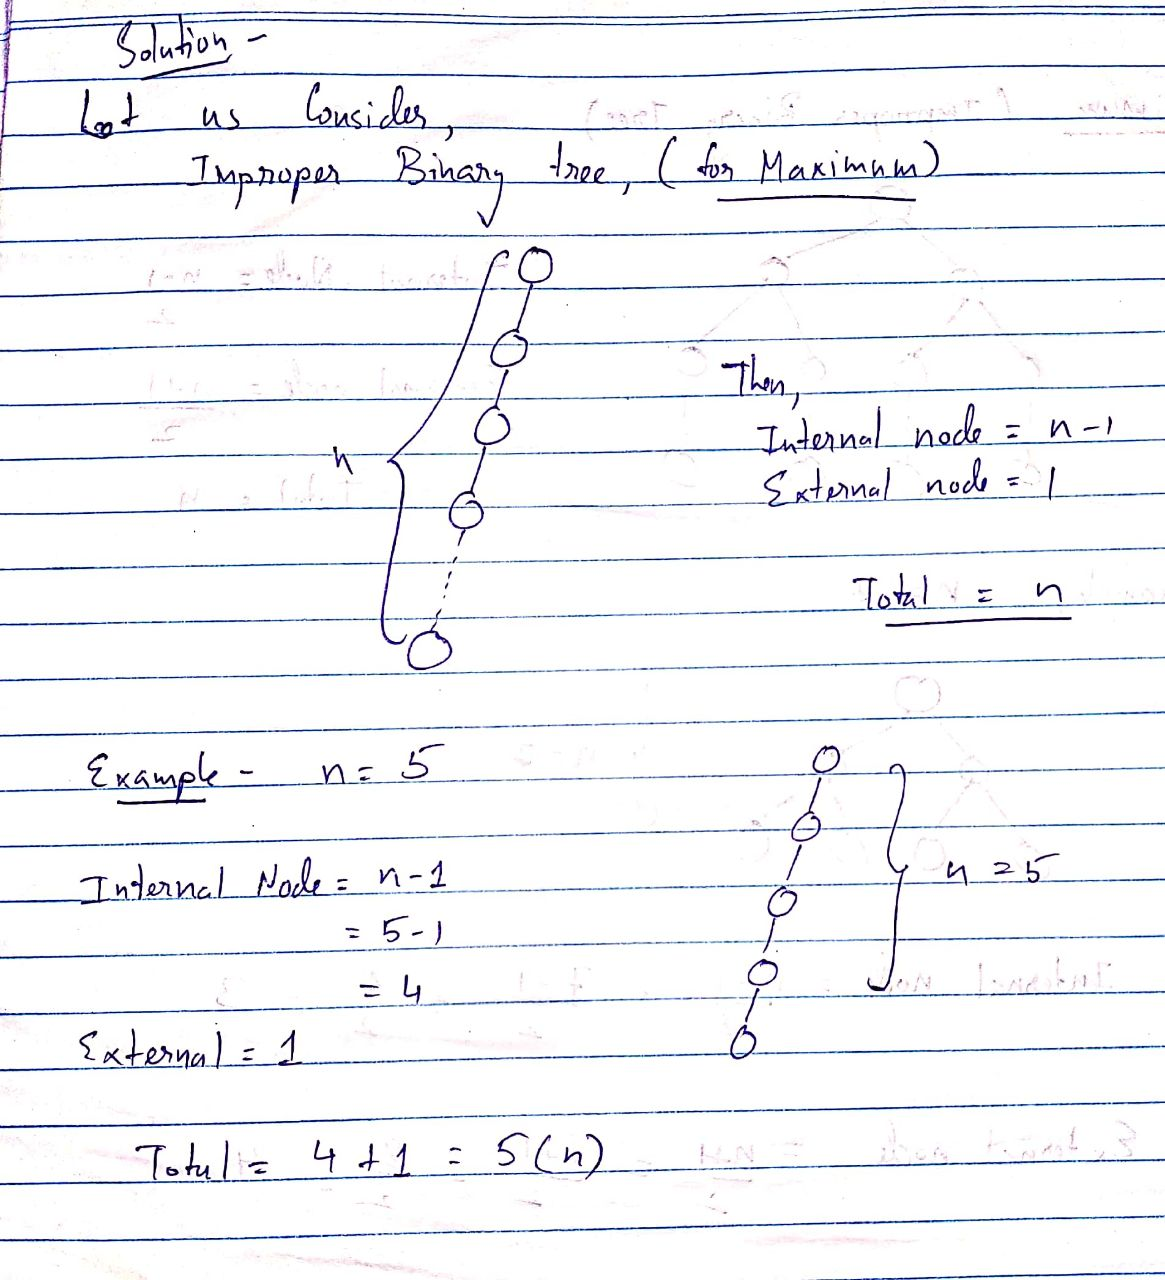 Solution -
Let us Consider,
Improper Binary tree, ( for Maximum)
Then,
n
Internal node = n-1
External node = 1
Total = n
Example - n = 5
n = 5
Internal Node = n-1
= 5-1
= 4
External = 1
Total = 4 + 1 = 5 (n)